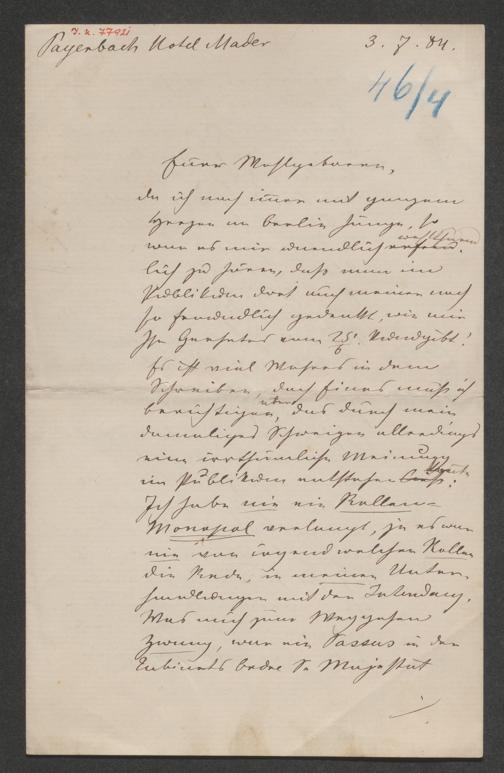 J. N. 77921
Payerbach Hotel Mader 3. 7. 84.
46/4
Euer Wohlgeboren,
da ich noch immer mit ganzem
Herzen an Berlin hänge, so
war es mir unendlich wohlthuend
zu hören, daß man im
Publikum dort auch meiner noch
so freundlich gedenkt, wie mir
Ihr Geehrtes vom 25/6. kundgibt!
Es ist viel Wahres in dem
Schreiben, doch Eines muß ich
berichtigen, das durch mein
aber
damaliges Schweigen allerdings
eine irrthümliche Meinung
im Publikum entstehen konnte:
Ich habe nie ein Rollen-
Monopol verlangt, ja es war
nie von irgend welchen Rollen
die Rede, in meinen Unter-
handlungen mit der Intendanz.
Was mich zum Weggehen
zwang, war ein Passus in der
Cabinets Ordre Sr Majestät